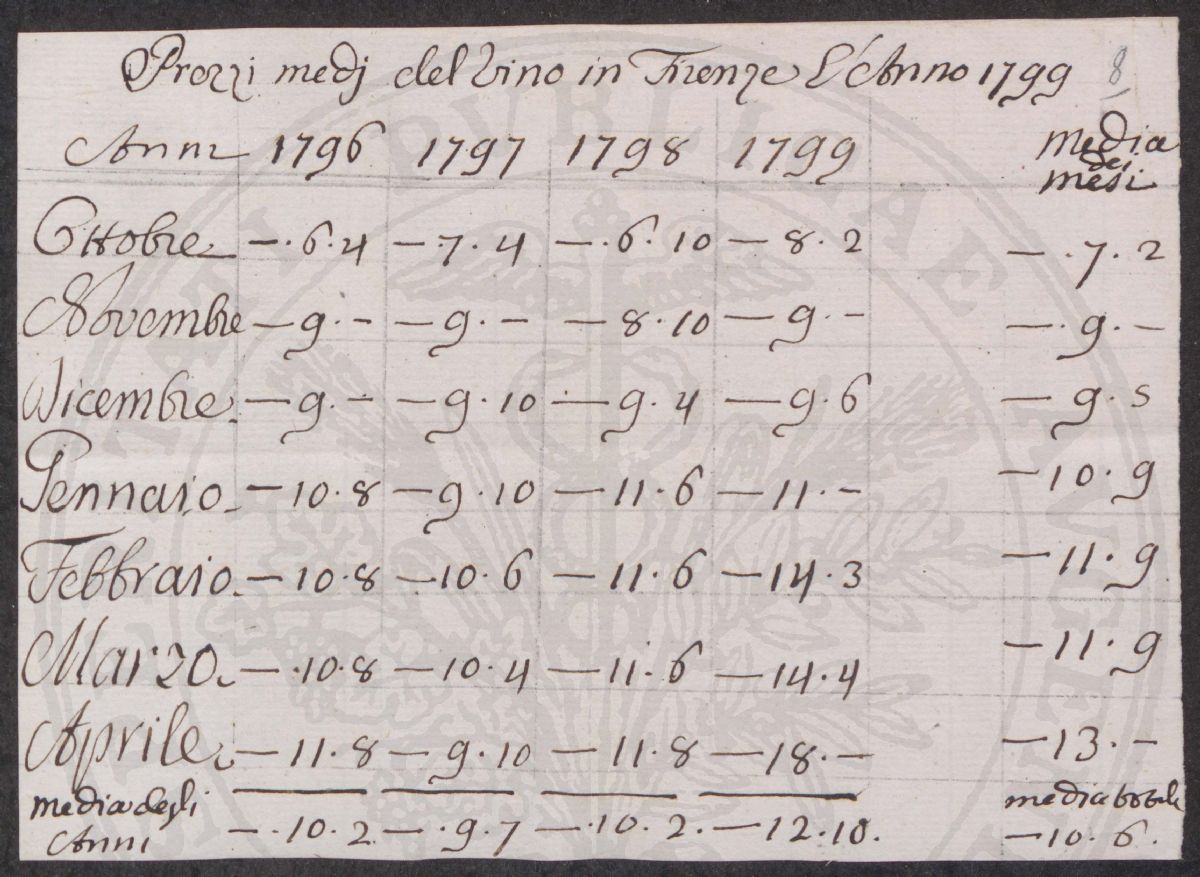 Prezzi medj del Vino in Firenze L'Anno 1799 8
Anni 1796 1797 1798 1799 media dei mesi
Ottobre —.6.4 —.7.4 —.6.10 —8.2 —.7.2
Novembre —9.– —9.– —8.10 —9.– —.9.–
Dicembre —9.– —9.10 —9.4 —9.6 —9.5
Gennaio —10.8 —9.10 —11.6 —11.– —10.9
Febbraio —10.8 —10.6 —11.6 —14.3 —11.9
Marzo —.10.8 —10.4 —11.6 —14.4 —11.9
Aprile —11.8 —9.10 —11.8 —18.– —13.–
media degli Anni —.10.2 —.9.7 —.10.2. —12.10. media totale —10.6.
PUBLICAE